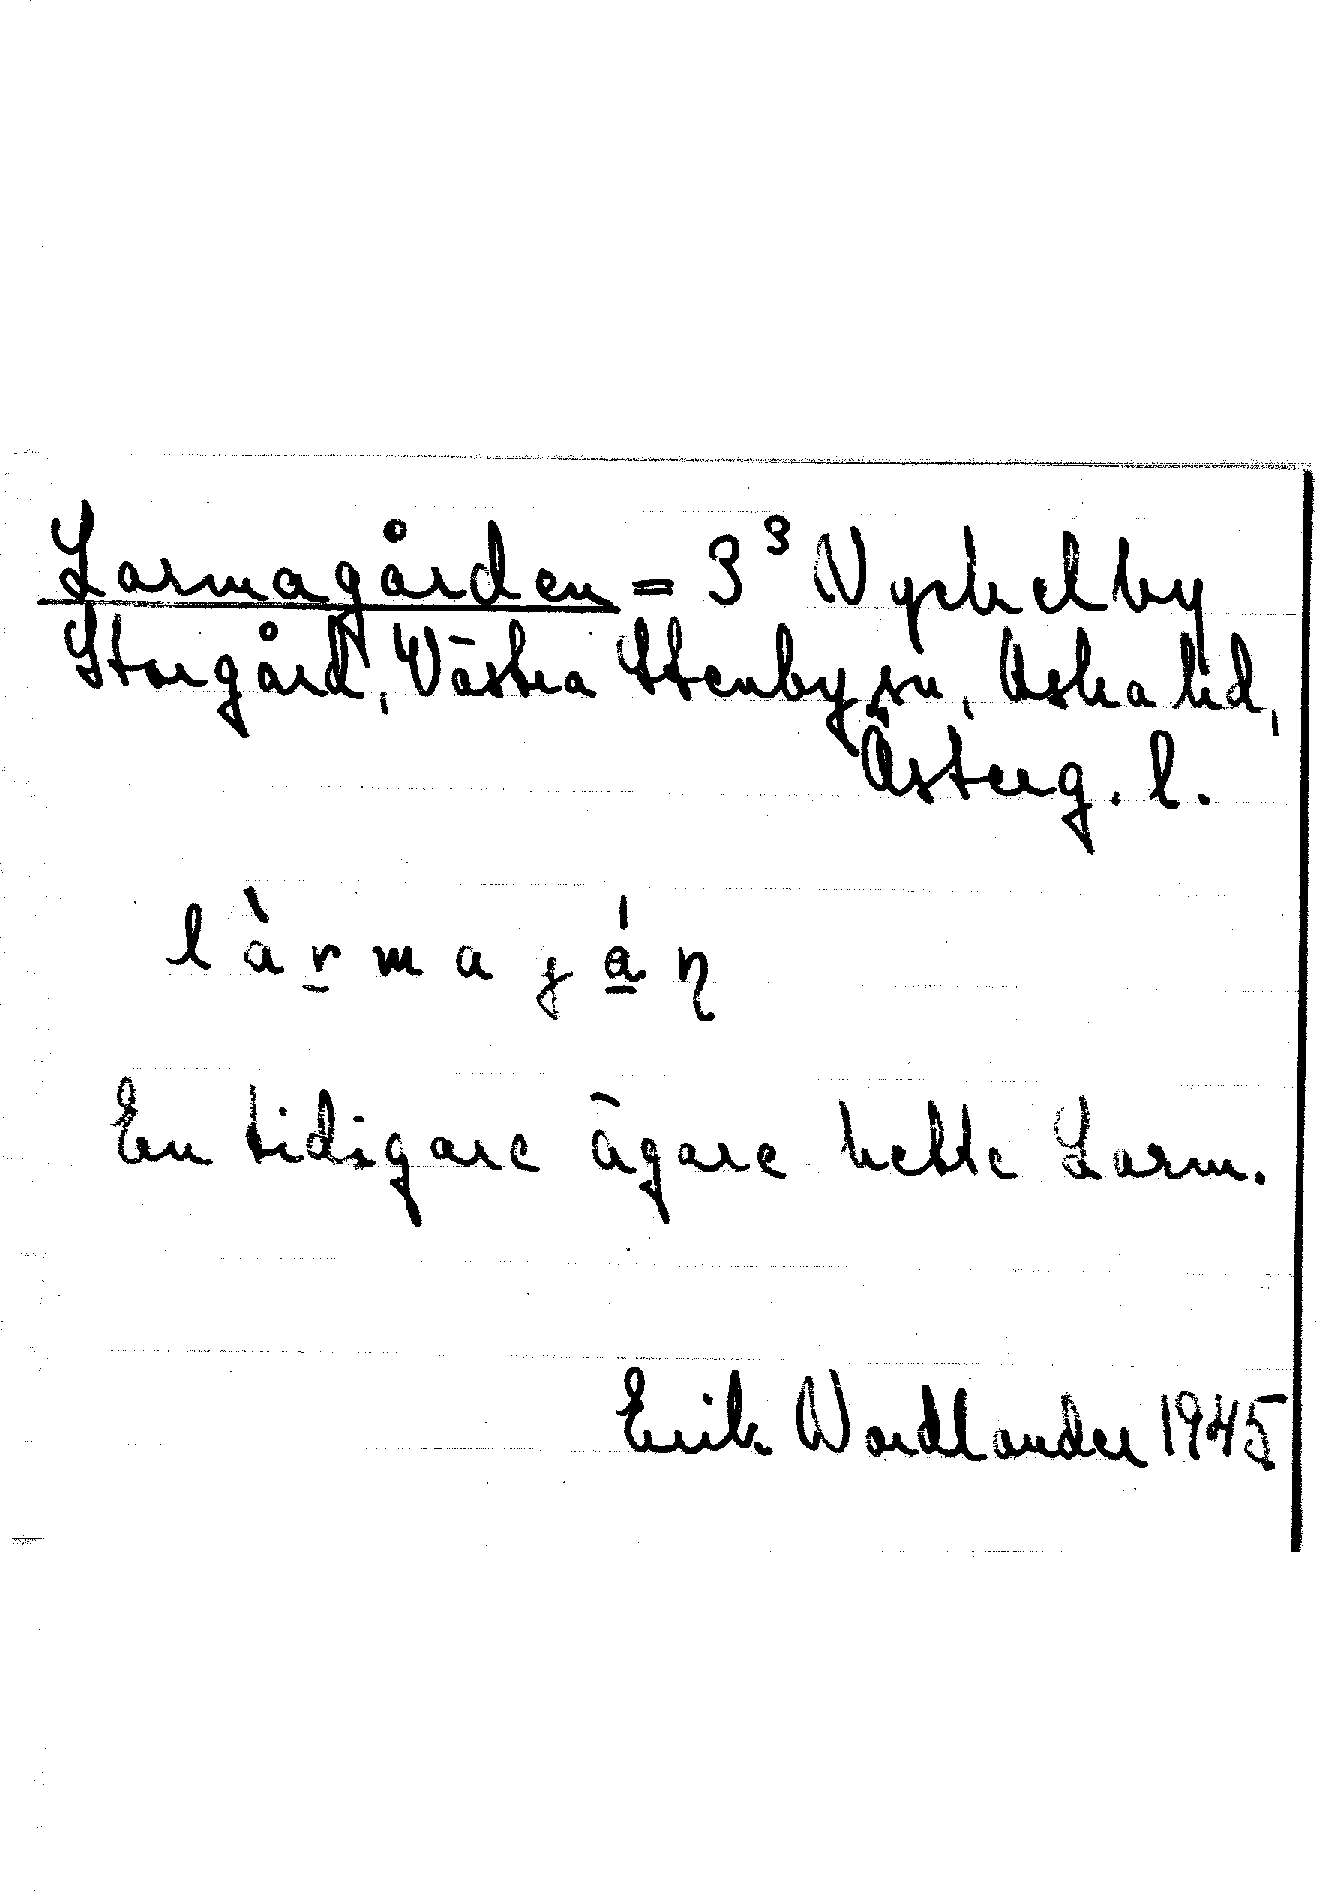 Larmagården = 3³ Nyckelby
Storgård, Västra Stenby sn, Aska hd,
Österg. l.
làrmagán
En tidigare ägare hette Larm.
Erik Nordlander 1945